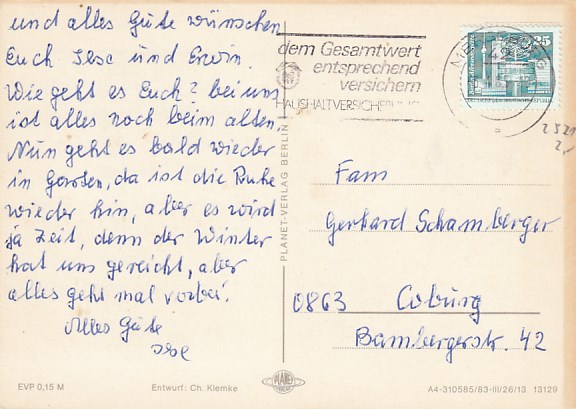 und alles Gute wünschen
Euch Ilse und Erwin.
Wie geht es Euch? bei uns
ist alles noch beim alten.
Nun geht es bald wieder
in Garten, da ist die Ruhe
wieder hin, aber es wird
ja Zeit, denn der Winter
hat uns gereicht, aber
alles geht mal vorbei.
Alles Gute
Ilse
EVP 0,15 M
Entwurf: Ch. Klemke
PLANET-VERLAG BERLIN
PLANET
dem Gesamtwert
entsprechend
versichern
HAUSHALTVERSICHERUNG
25
Fam
Gerhard Schamberger
863 Coburg
Bambergerstr. 42
A4-310585/83-III/26/13 13129